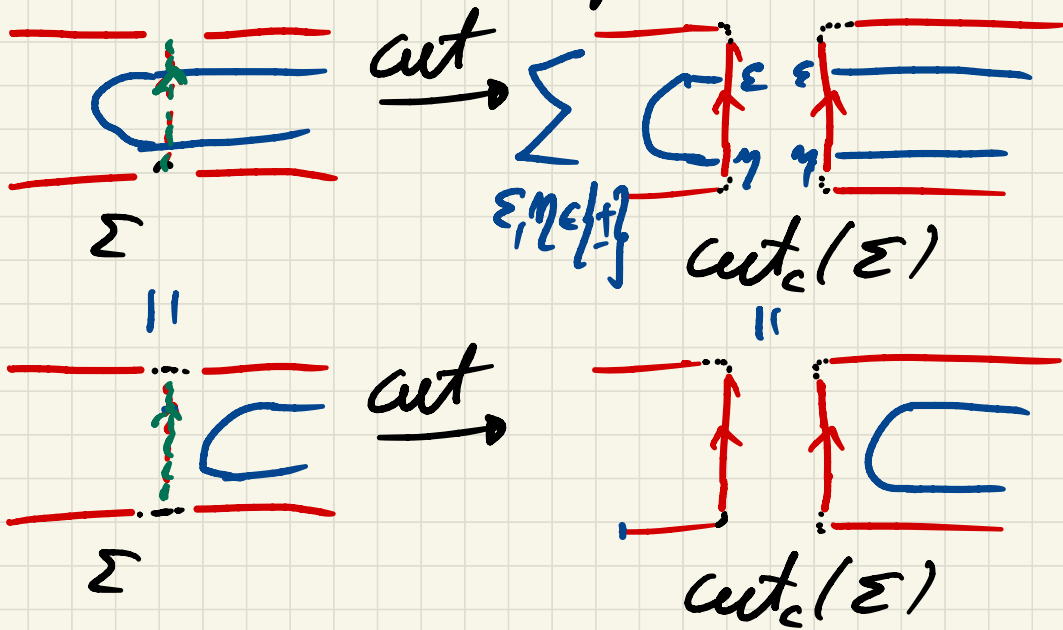 cut
Σ
ε ε
η η
ε,η∈{±}
Σ
cut_c(Σ)
=
=
cut
Σ
cut_c(Σ)